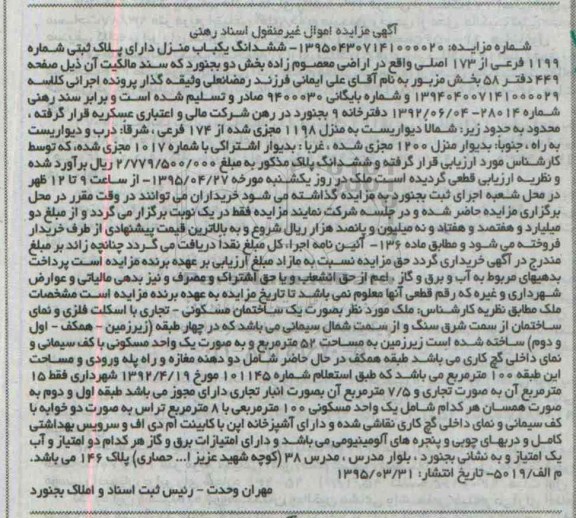 آگهی مزایده اموال غیرمنقول اسناد رهنی
شماره مزایده: ۱۳۹۵۰۴۳۰۷۱۴۱۰۰۰۰۲۰- ششدانگ یکباب منزل دارای پلاک ثبتی شماره
۱۱۹۹ فرعی از ۱۷۳ اصلی واقع در اراضی معصوم زاده بخش دو بجنورد که سند مالکیت آن ذیل صفحه
۴۴۹ دفتر ۵۸ بخش مزبور به نام آقای علی ایمانی فرزند رمضانعلی وثیقه گذار پرونده اجرائی کلاسه
۱۳۹۴۰۴۰۰۷۱۴۱۰۰۰۰۲۹ و شماره بایگانی ۹۴۰۰۰۳۰ صادر و تسلیم شده است و برابر سند رهنی
شماره ۲۸۰۱۴- ۱۳۹۲/۰۶/۰۴ دفترخانه ۹ بجنورد در رهن شرکت مالی و اعتباری عسکریه قرار گرفته ،
محدود به حدود زیر: شمالا دیواریست به منزل ۱۱۹۸ مجزی شده از ۱۷۴ فرعی ، شرقا: درب و دیواریست
به راه ، جنوبا: بدیوار منزل ۱۲۰۰ مجزی شده ، غربا : بدیوار اشتراکی با شماره ۱۰۱۷ مجزی شده، که توسط
کارشناس مورد ارزیابی قرار گرفته و ششدانگ پلاک مذکور به مبلغ ۲/۷۷۹/۵۰۰/۰۰۰ ریال برآورد شده
و نظریه ارزیابی قطعی گردیده است ملک در روز یکشنبه مورخه ۱۳۹۵/۰۴/۲۷- از ساعت ۹ تا ۱۲ ظهر
در محل شعبه اجرای ثبت بجنورد به مزایده گذاشته می شود خریداران می توانند در وقت مقرر در محل
برگزاری مزایده حاضر شده و در جلسه شرکت نمایند مزایده فقط در یک نوبت برگزار می گردد و از مبلغ دو
میلیارد و هفتصد و هفتاد و نه میلیون و پانصد هزار ریال شروع و به بالاترین قیمت پیشنهادی از طرف خریدار
فروخته می شود و مطابق ماده ۱۳۶- آئین نامه اجراء، کل مبلغ نقدا دریافت می گردد چنانچه زائد بر مبلغ
مندرج در آگهی خریداری گردد حق مزایده نسبت به مازاد مبلغ ارزیابی بر عهده برنده مزایده است پرداخت
بدهیهای مربوط به آب و برق و گاز . اعم از حق انشعاب و یا حق اشتراک و مصرف و نیز بدهی مالیاتی و عوارض
شهرداری و غیره که رقم قطعی آنها معلوم نمی باشد تا تاریخ مزایده به عهده برنده مزایده است مشخصات
ملک مطابق نظریه کارشناس: ملک مورد نظر بصورت یک ساختمان مسکونی - تجاری با اسکلت فلزی و نمای
ساختمان از سمت شرق سنگ و از سمت شمال سیمانی می باشد که در چهار طبقه (زیرزمین - همکف - اول
و دوم) ساخته شده است زیرزمین به مساحت ۵۲ مترمربع و به صورت یک واحد مسکونی با کف سیمانی و
نمای داخلی گچ کاری می باشد طبقه همکف در حال حاضر شامل دو دهنه مغازه و راه پله ورودی و مساحت
این طبقه ۱۰۰ مترمربع می باشد که طبق استعلام شماره ۱۰۱۱۴۵ مورخ ۱۳۹۲/۴/۱۹ شهرداری فقط ۱۵
مترمربع آن به صورت تجاری و ۷/۵ مترمربع آن بصورت انبار تجاری دارای مجوز می باشد طبقه اول و دوم به
صورت همسان هر کدام شامل یک واحد مسکونی ۱۰۰ مترمربعی با ۸ مترمربع تراس به صورت دو خوابه با
کف سیمانی و نمای داخلی گچ کاری نقاشی شده و دارای آشپزخانه اپن با کابینت ام دی اف و سرویس بهداشتی
کامل و دربهای چوبی و پنجره های آلومینیومی می باشد و دارای امتیازات برق و گاز هر کدام دو امتیاز و آب
یک امتیاز و به نشانی بجنورد ، بلوار مدرس ، مدرس ۳۸ (کوچه شهید عزیز ا... حصاری) پلاک ۱۴۶ می باشد.
م الف/۵۰۱۹- تاریخ انتشار: ۱۳۹۵/۰۳/۳۱
مهران وحدت - رئیس ثبت اسناد و املاک بجنورد